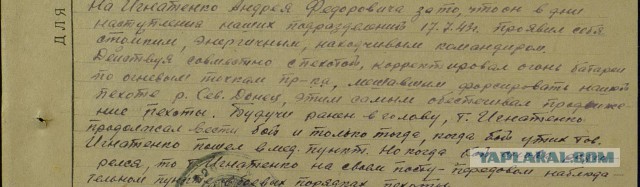 На Игнатенко Андрея Федоровича за то, что он в дни
наступления наших подразделений 17.7.43г. проявил себя
стойким, энергичным, находчивым командиром.
Действуя совместно с пехотой, корректировал огонь батареи
по огневым точкам пр-ка, мешавшим форсировать нашей
пехоте р. Сев. Донец, этим самым обеспечивал продвиже-
ние пехоты. Будучи ранен в голову, т. Игнатенко
продолжал вести бой и только тогда, когда бой утих тов.
Игнатенко пошел в мед. пункт. Но когда
рился, то т. Игнатенко на своем посту - передовом наблюда-
тельном пункте в боевых порядках пехоты
ДЛЯ
YAPLAKAL.COM